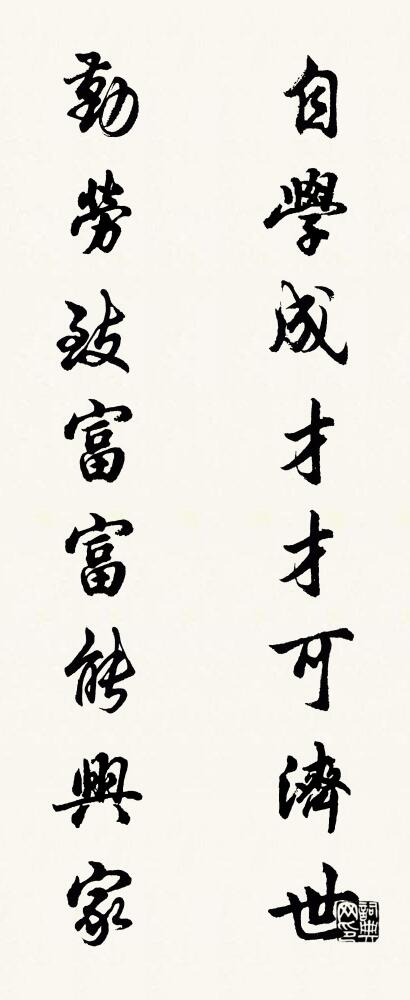 自學成才才可濟世
勤勞致富富能興家
詞典网印